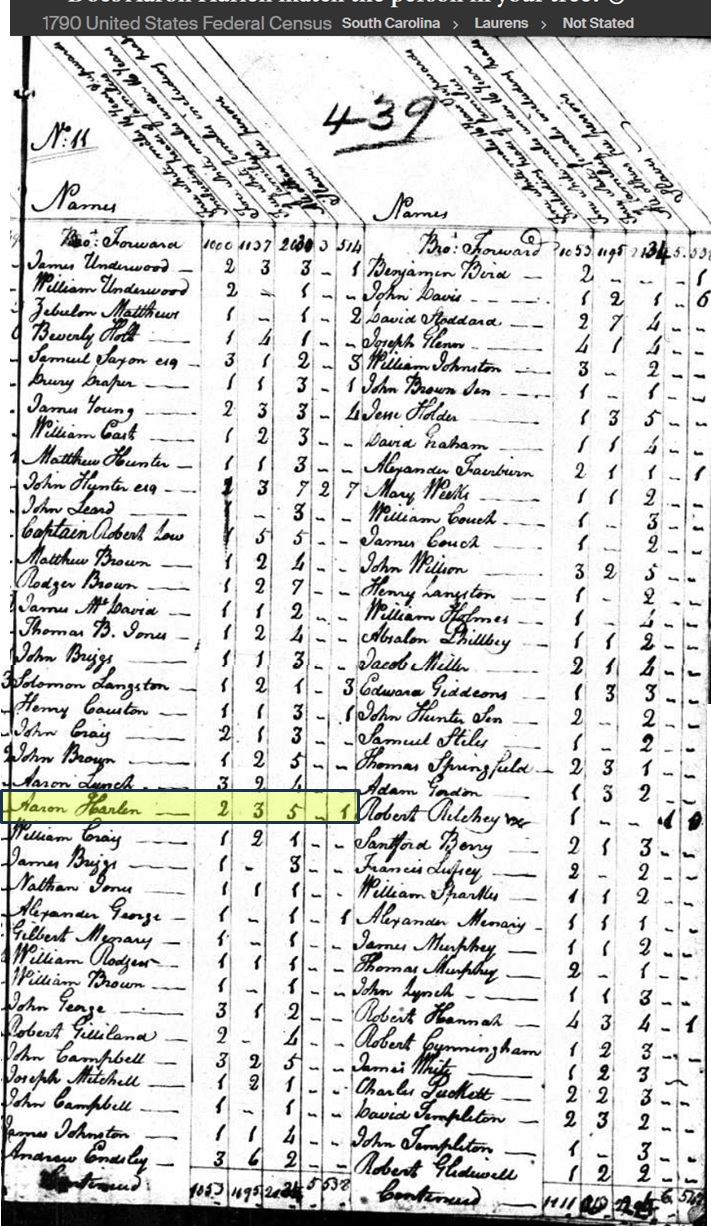 1790 United States Federal Census South Carolina > Laurens > Not Stated
439
No. 11
Names
Names
Bro.t Forward 1000 1137 3 514
James Underwood 2 3 3 - 1
William Underwood 2 - 1 - -
Zebulon Matthews 1 - 1 - 2
Beverly Holt 1 4 1 - -
Samuel Saxon esq 3 1 2 - 3
Drury Draper 1 1 3 - 1
James Young 2 3 3 - 4
William Cast 1 2 3 - -
Matthew Hunter 1 1 3 - -
John Hunter esq 3 7 2 7
John Leard 1 - 3 - -
Captain Robert Low 1 5 5 - -
Matthew Brown 1 2 4 - -
Rodger Brown 1 2 7 - -
James McDavid 1 1 2 - -
Thomas B. Jones 1 2 4 - -
John Briggs 1 1 3 - -
Solomon Langston 1 2 1 - 3
Henry Causton 1 1 3 - 1
John Craig 2 1 3 - -
John Brown 1 2 5 - -
Aaron Lynch 3 2 4 - -
Aaron Harlen 2 3 5 - 1
William Craig 1 2 1 - -
James Briggs 1 - 3 - -
Nathan Jones 1 1 1 - -
Alexander George 1 - 1 - 1
Gilbert Menary 1 - 1 - -
William Rodgers 1 1 1 - -
William Brown 1 - 1 - -
John George 3 1 2 - -
Robert Gilliland 2 - 4 - -
John Campbell 3 2 5 - -
Joseph Mitchell 1 2 1 - -
John Campbell 1 - 1 - -
James Johnston 1 1 4 - -
Andrew Endsley 3 6 2 - -
Continued 1053 1195 5 538
Bro.t Forward 1053 1195 5 538
Benjamin Bird 2 - - - 1
John Davis 1 2 1 - 6
David Stoddard 2 7 4 - -
Joseph Glenn 4 1 4 - -
William Johnston 3 - 2 - -
John Brown Sen 1 - 1 - -
Jesse Holder 1 3 5 - -
David Graham 1 1 4 - -
Alexander Fairburn 2 1 1 - 1
Mary Weeks 1 1 2 - -
William Couch 1 - 3 - -
James Couch 1 - 2 - -
John Willson 3 2 5 - -
Henry Langston 1 - 2 - -
William Holmes 1 - 4 - -
Absalon Philbey 1 1 2 - -
Jacob Miller 2 1 4 - -
Edward Giddeons 1 3 3 - -
John Hunter Sen 2 - 2 - -
Samuel Stiles 1 - 2 - -
Thomas Springfield 2 3 1 - -
Adam Gordon 1 3 2 - -
Robert Ritchey 1 - -
Santford Berry 2 1 3 - -
Francis 2 - 2 - -
William Sparkes 1 1 2 - -
Alexander Menary 1 1 1 - -
James Murphey 1 1 2 - -
Thomas Murphey 2 - 1 - -
John Lynch 1 1 3 - -
Robert Hannah 4 3 4 - 1
Robert Cunningham 1 2 3 - -
James White 1 2 3 - -
Charles Puckett 2 2 3 - -
David Templeton 2 3 2 - -
John Templeton 1 - 3 - -
Robert Glidewell 1 2 2 - -
Continued 1111